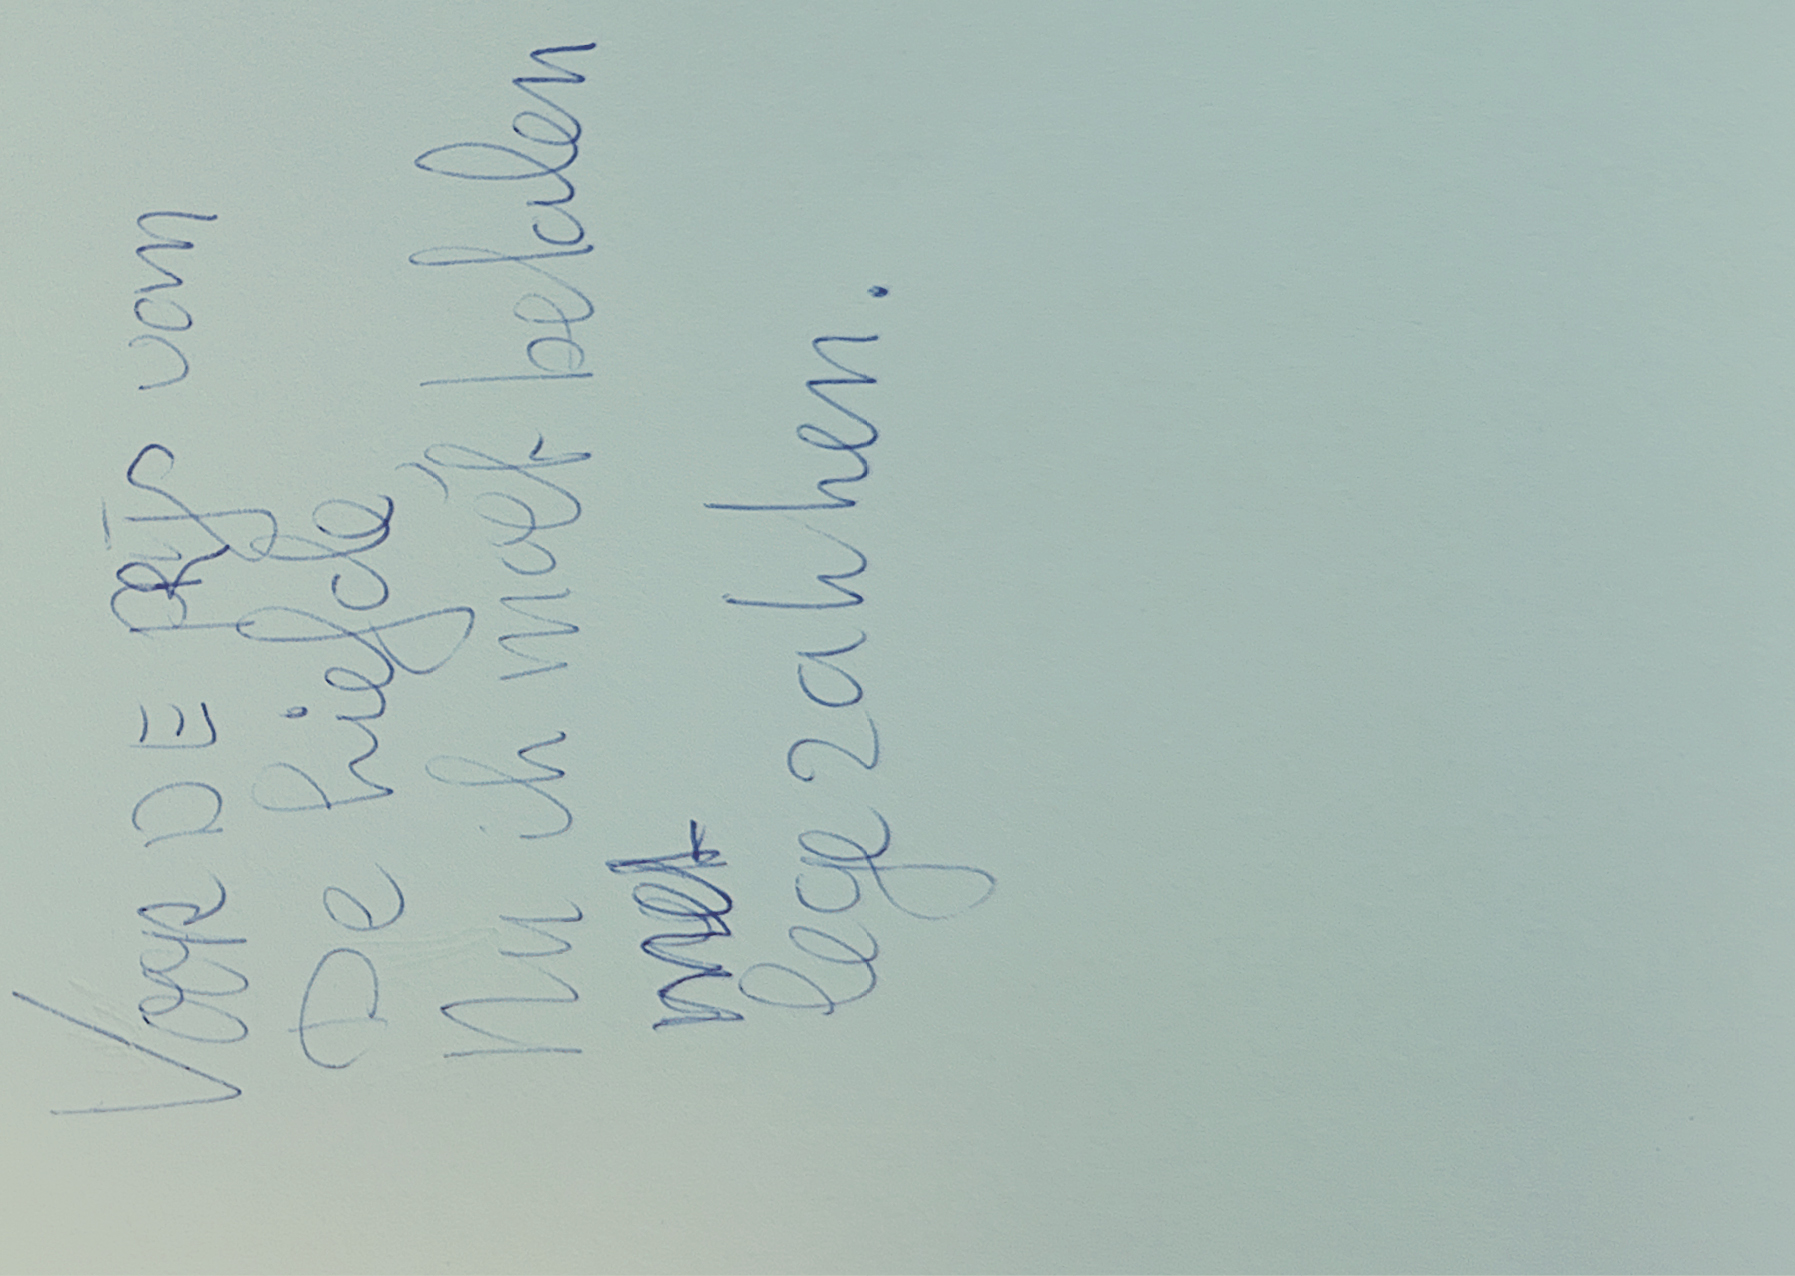 Voor DE prijs van
De liefde
Nu ik moet betalen
met
lege zakken.